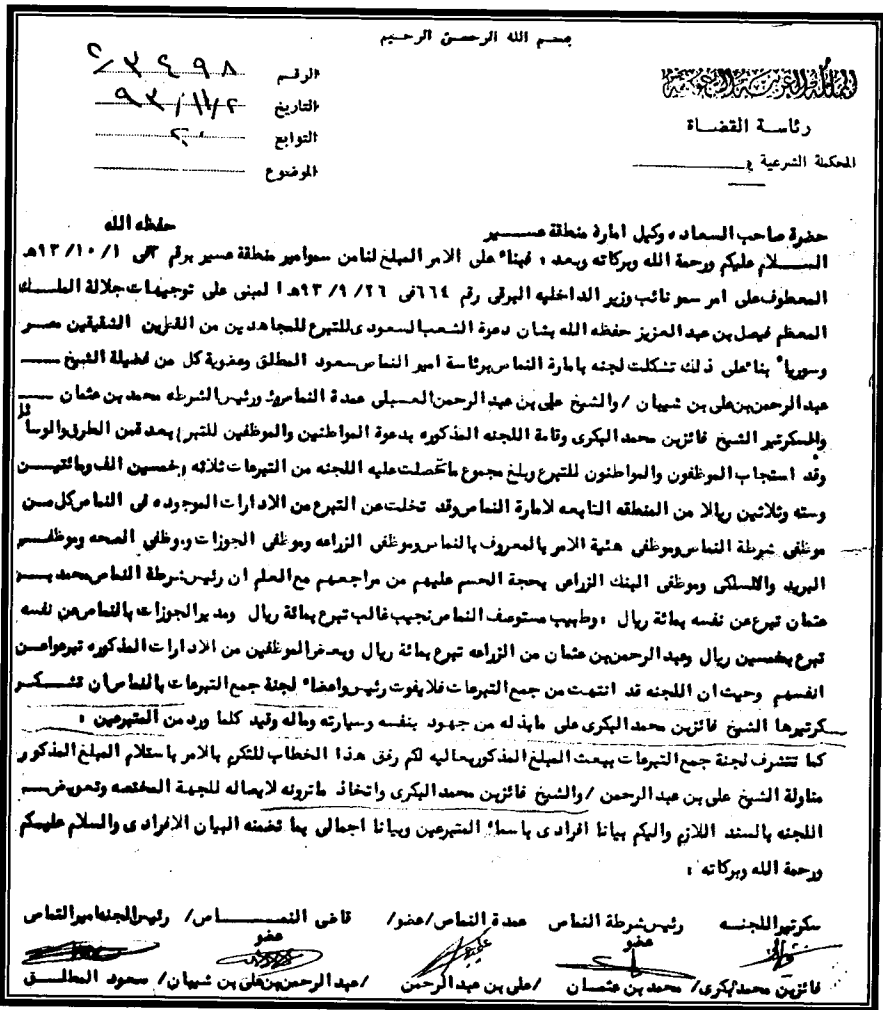 بسم الله الرحمن الرحيم
المملكة العربية السعودية
رئاسة القضاة
المحكمة الشرعية في
الرقم ٢/٣٤٩٨
التاريخ ٩٣/١١/٢
التوابع
الموضوع
حضرة صاحب السعاده وكيل امارة منطقة عسير حفظه الله
السلام عليكم ورحمة الله وبركاته وبعد ، فبناء على الامر المبلغ لنا من سمو امير منطقة عسير برقم في ٩٣/١٠/١هـ
المعطوف على امر سمو نائب وزير الداخليه البرقى رقم ٦٦٤ فى ٩٣/٩/٢٦هـ المبنى على توجيهات جلالة الملك
المعظم فيصل بن عبد العزيز حفظه الله بشان دعوة الشعب السعودى للتبرع للمجاهدين من القطرين الشقيقين مصر
وسوريا بناء على ذلك تشكلت لجنه بامارة النماص برئاسة امير النماص سعود المطلق وعضوية كل من فضيلة الشيخ
عبد الرحمن بن على بن شيبان / والشيخ على بن عبد الرحمن العسبلى عمدة النماص ورئيس الشرطه محمد بن عثمان
والسكرتير الشيخ فائز بن محمد البكرى وقامة اللجنه المذكوره بدعوة المواطنين والموظفين للتبرع بعدة من الطرق والوسائل
وقد استجاب الموظفون والمواطنون للتبرع وبلغ مجموع ماتحصلت عليه اللجنه من التبرعات ثلاثه وخمسين الف ومائتين
وسته وثلاثين ريالا من المنطقه التابعه لامارة النماص وقد تخلت عن التبرع من الادارات الموجوده فى النماص كل من
موظفى شرطة النماص وموظفى هئية الامر بالمعروف بالنماص وموظفى الزراعه وموظفى الجوزات وموظفي الصحه وموظفى
البريد واللاسلكى وموظفى البنك الزراعى بحجة الحسم عليهم من مراجعهم مع العلم ان رئيس شرطة النماص محمد بن
عثمان تبرع عن نفسه بمائة ريال ، وطبيب مستوصف النماص نجيب غالب تبرع بمائة ريال ومدير الجوزات بالنماص عن نفسه
تبرع بخمسين ريال وعبد الرحمن بن عثمان من الزراعه تبرع بمائة ريال وبعض الموظفين من الادارات المذكوره تبرعوا عن
انفسهم وحيث ان اللجنه قد انتهت من جمع التبرعات فلا يفوت رئيس واعضاء لجنة جمع التبرعات بالنماص ان تشكر
سكرتيرها الشيخ فائز بن محمد البكرى على مابذله من جهود بنفسه وسيارته وماله وقيد كلما ورد من المتبرعين ،
كما تتشرف لجنة جمع التبرعات ببعث المبلغ المذكور بعاليه لكم رفق هذا الخطاب للتكرم بالامر باستلام المبلغ المذكور
مناولة الشيخ على بن عبد الرحمن / والشيخ فائز بن محمد البكرى واتخاذ ماترونه لايصاله للجهة المختصه وتعويض
اللجنه بالسند اللازم واليكم بيانا افرادى باسماء المتبرعين وبيانا اجمالى بما تضمنه البيان الافرادى والسلام عليكم
ورحمة الله وبركاته ،
سكرتير اللجنه رئيس شرطة النماص عمدة النماص/عضو/ قاضى النماص/ رئيس اللجنه امير النماص
عضو عضو
فائز بن محمد البكرى/ محمد بن عثمان /على بن عبد الرحمن /عبد الرحمن بن على بن شيبان/ سعود المطلق